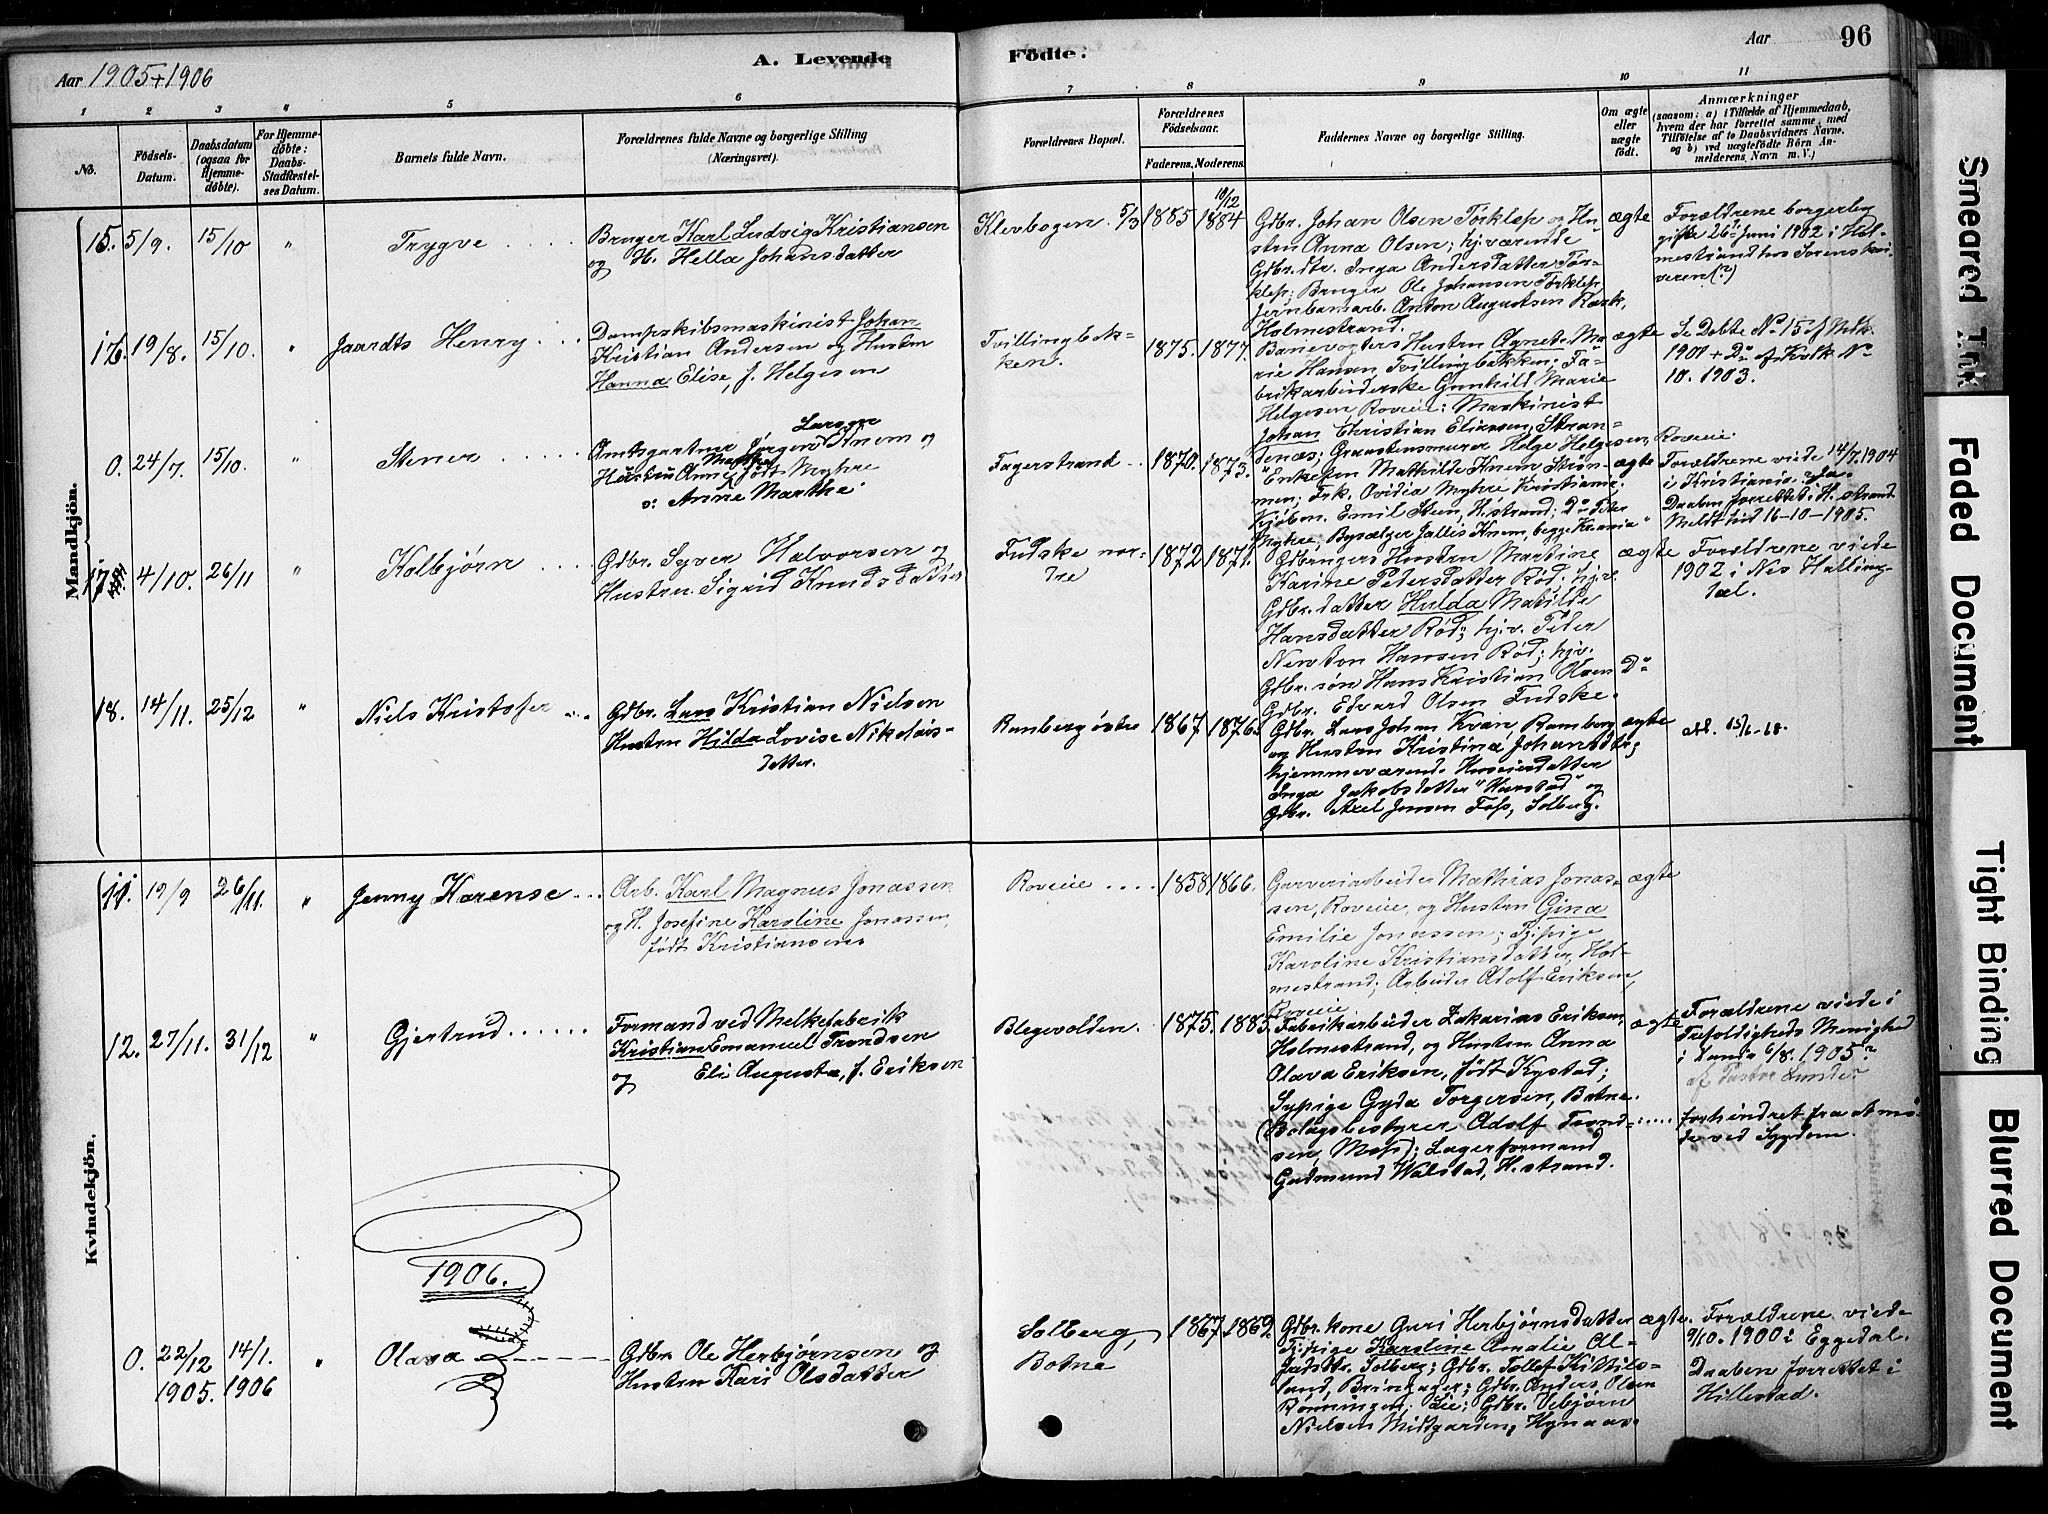 Aar 1905+1906
A. Levende
Födte.
Aar
96
1 2 3 4 5 6 7 8 9 10 11
No.
Födsels-Datum.
Daabsdatum (ogsaa for Hjemmedøbte).
For Hjemmedøbte: Daabs-Stadfæstelses Datum.
Barnets fulde Navn.
Forældrenes fulde Navne og borgerlige Stilling (Næringsvei).
Forældrenes Bopæl.
Forældrenes Födselsaar.
Faderens. Moderens.
Faddernes Navne og borgerlige Stilling.
Om ægte eller uægte født.
Anmærkninger
(saasom: a) i Tilfælde af Hjemmedaab, hvem der har forrettet samme, med Tilføielse af to Daabsvidners Navne, og b) ved uægtefödte Börn Anmelderens Navn m. V.)
Mandkjön.
15. 5/9. 15/10 " Trygve
Bruger Karl Ludvig Kristiansen
og H. Hella Johansdatter
Klevbogen. 5/3 1885 10/12 1884
Gdbr. Johan Olsen Torklep og Hu-
stru Anna Olsen; hj.værende
Gdbr.dtr. Inga Andersdatter Tor-
klep; Bruger Ole Johansen Torklep,
Jernbanearb. Anton Augustsen Rærk,
Holmestrand.
ægte
Forældrene borgerleg
gifte 26de Juni 1902 i Hol-
mestrand hos Sorenskri-
veren(?)
16. 19/8. 15/10. " Jaardts Henry
Dampskibsmaskinist Johan
Kristian Andersen og Hustru
Hanna Elise, f. Helgesen
Tvillingbak-
ken.
1875. 1877.
Banevogters Hustru Agnete Ma-
rie Hansen, Tvillingbakken; Fa-
brikarbeiderske Gunhild Marie
Helgesen, Roveie; Maskinist
Johan Christian Eliassen, Stran-
denæs; Graastensmurer Helge Helgesen, Roveie.
ægte
Se Døbte No 15 af Mdk.
1901 + Do af Kvdk No
10. 1903.
0. 24/7. 15/10. " Stener
Amtsgartner Jørgen Larsen Knem og
Hustru Anne Marthe født Myhre
o: Anne Marthe.
Fagerstrand
1870. 1873.
Enkefru Mathilde Knem, Strøm-
men; Frk. Ovidia Myhre Kristiania;
Kjøbm. Emil Steen, H.strand; Do Peter
Myhre, Bysælger Jallis Knem, begge Kr.ania
ægte
Forældrene viede 14/7. 1904
i Kristiania
Daaben forrettet i H.strand
Meldt hid 16-10-1905.
17. 4/10. 26/11 " Kolbjørn
Gdbr. Syver Halvorsen og
Hustru Sigrid Knudsdatter
Fudske nor-
dre
1872 1871.
Gdbrugers Hustru Martine
Karine Petersdatter Rød; hj.v.
Gdbr.datter Hulda Matilde
Hansdatter Rød; hj.v. Peter
Newton Hansen Rød; hjv.
Gdbr. søn Hans Kristian Olsen Do
Gdbr. Edvard Olsen Fudske.
ægte
Forældrene viede
1902 i Nes Halling-
dal.
18. 14/11. 25/12 " Niels Kristofer
Gdbr. Lars Kristian Nielsen
Hustru Hilda Lovise Nikolais-
datter.
Ramberg østre
1867 1876.
Gdbr. Lars Johan Kvan, Ramberg
og Hustru Kristina Johansdtr;
hjemmeværende Huseierdatter
Inga Jakobsdatter "Harstad" og
Gdbr. Axel Jensen Foss, Solberg.
ægte
att. 15/6-68.
Kvindekjön.
11. 19/9 26/11. " Jenny Karense
Arb. Karl Magnus Jonassen
og H. Josefine Karoline Jonassen,
født Kristiansen
Roveie
1858 1866.
Garveriarbeider Mathias Jonas-
sen, Roveie, og Hustru Gina
Emilie Jonassen; Pi.pige
Karoline Kristiansdatter, Hol-
mestrand; Arbeider Adolf Eriksen,
Roveie
ægte
12. 27/11. 31/12 " Gjertrud
Formand ved Melkefabrik
Kristian Emanuel Trondsen
og Eli Augusta, f. Eriksen
Blegevolden.
1875. 1883.
Fabrikarbeider Zakarias Eriksen,
Holmestrand, og Hustru Anna
Olava Eriksen, født Kystad;
Sypige Gyda Torgersen, Botne.
(Bolagsbestyrer Adolf Trond-
sen, Moss); Lagerformand
Gudmund Walstad, H.strand.
ægte
Forældrene viede i
Trefoldigheds Menighed
i Xania 6/8. 1905?
af Pastor Lunde?
forhindret fra at mø-
de ved Sygdom.
1906.
0. 22/12 1905. 14/1. 1906 " Olava
Gdbr. Ole Herbjørnsen og
Hustru Kari Olsdatter
Solberg,
Botne
1867. 1869.
Gdbr. kone Guri Herbjørnsdatter
Tj.pige Karoline Amalie Ol-
Jadsttr. Solberg; Gdbr. Tollef Kittils-
land, Bringager; Gdbr. Anders Olsen
Rønningen, Lie; Gdbr. Vebjørn
Nielsen Midtgarden, Hynaas.
ægte.
Forældrene viede
9/10. 1900 i Eggedal.
Daaben forrettet i
Hillestad.
Smeared Ink
Faded Document
Tight Binding
Blurred Document